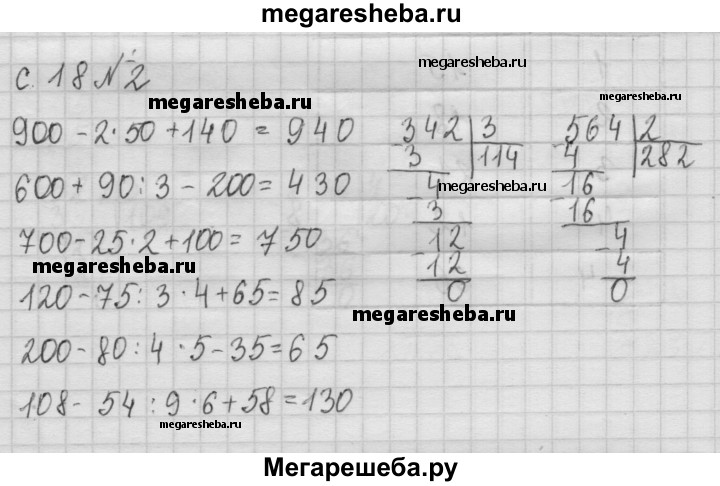 megaresheba.ru
с. 18 № 2
megaresheba.ru
megaresheba.ru
900 - 2·50 + 140 = 940
600 + 90 : 3 - 200 = 430
700 - 25·2 + 100 = 750
megaresheba.ru
120 - 75 : 3·4 + 65 = 85
200 - 80 : 4·5 - 35 = 65
108 - 54 : 9·6 + 58 = 130
megaresheba.ru
342 | 3
3 | 114
4
megaresheba.ru
3
12
12
0
564 | 2
4 | 282
16
16
4
4
0
megaresheba.ru
Мегарешеба.ру